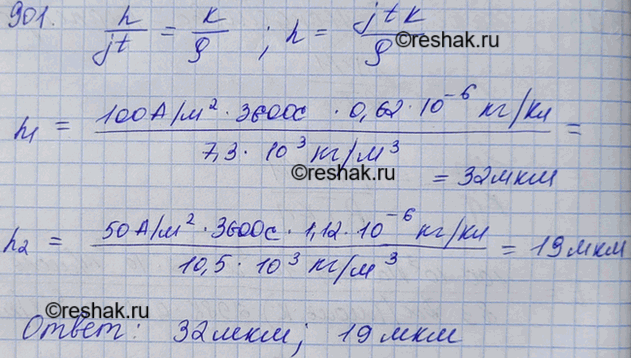 901. h/jt = k/ρ ; h = jtk/ρ
©reshak.ru
h₁ = 100 А/м² · 3600с · 0,62 · 10⁻⁶ кг/кл / 7,3 · 10³ кг/м³ =
©reshak.ru
= 32мкм
h₂ = 50 А/м² · 3600с · 1,12 · 10⁻⁶ кг/кл / 10,5 · 10³ кг/м³ = 19мкм
©reshak.ru
Ответ: 32мкм; 19мкм